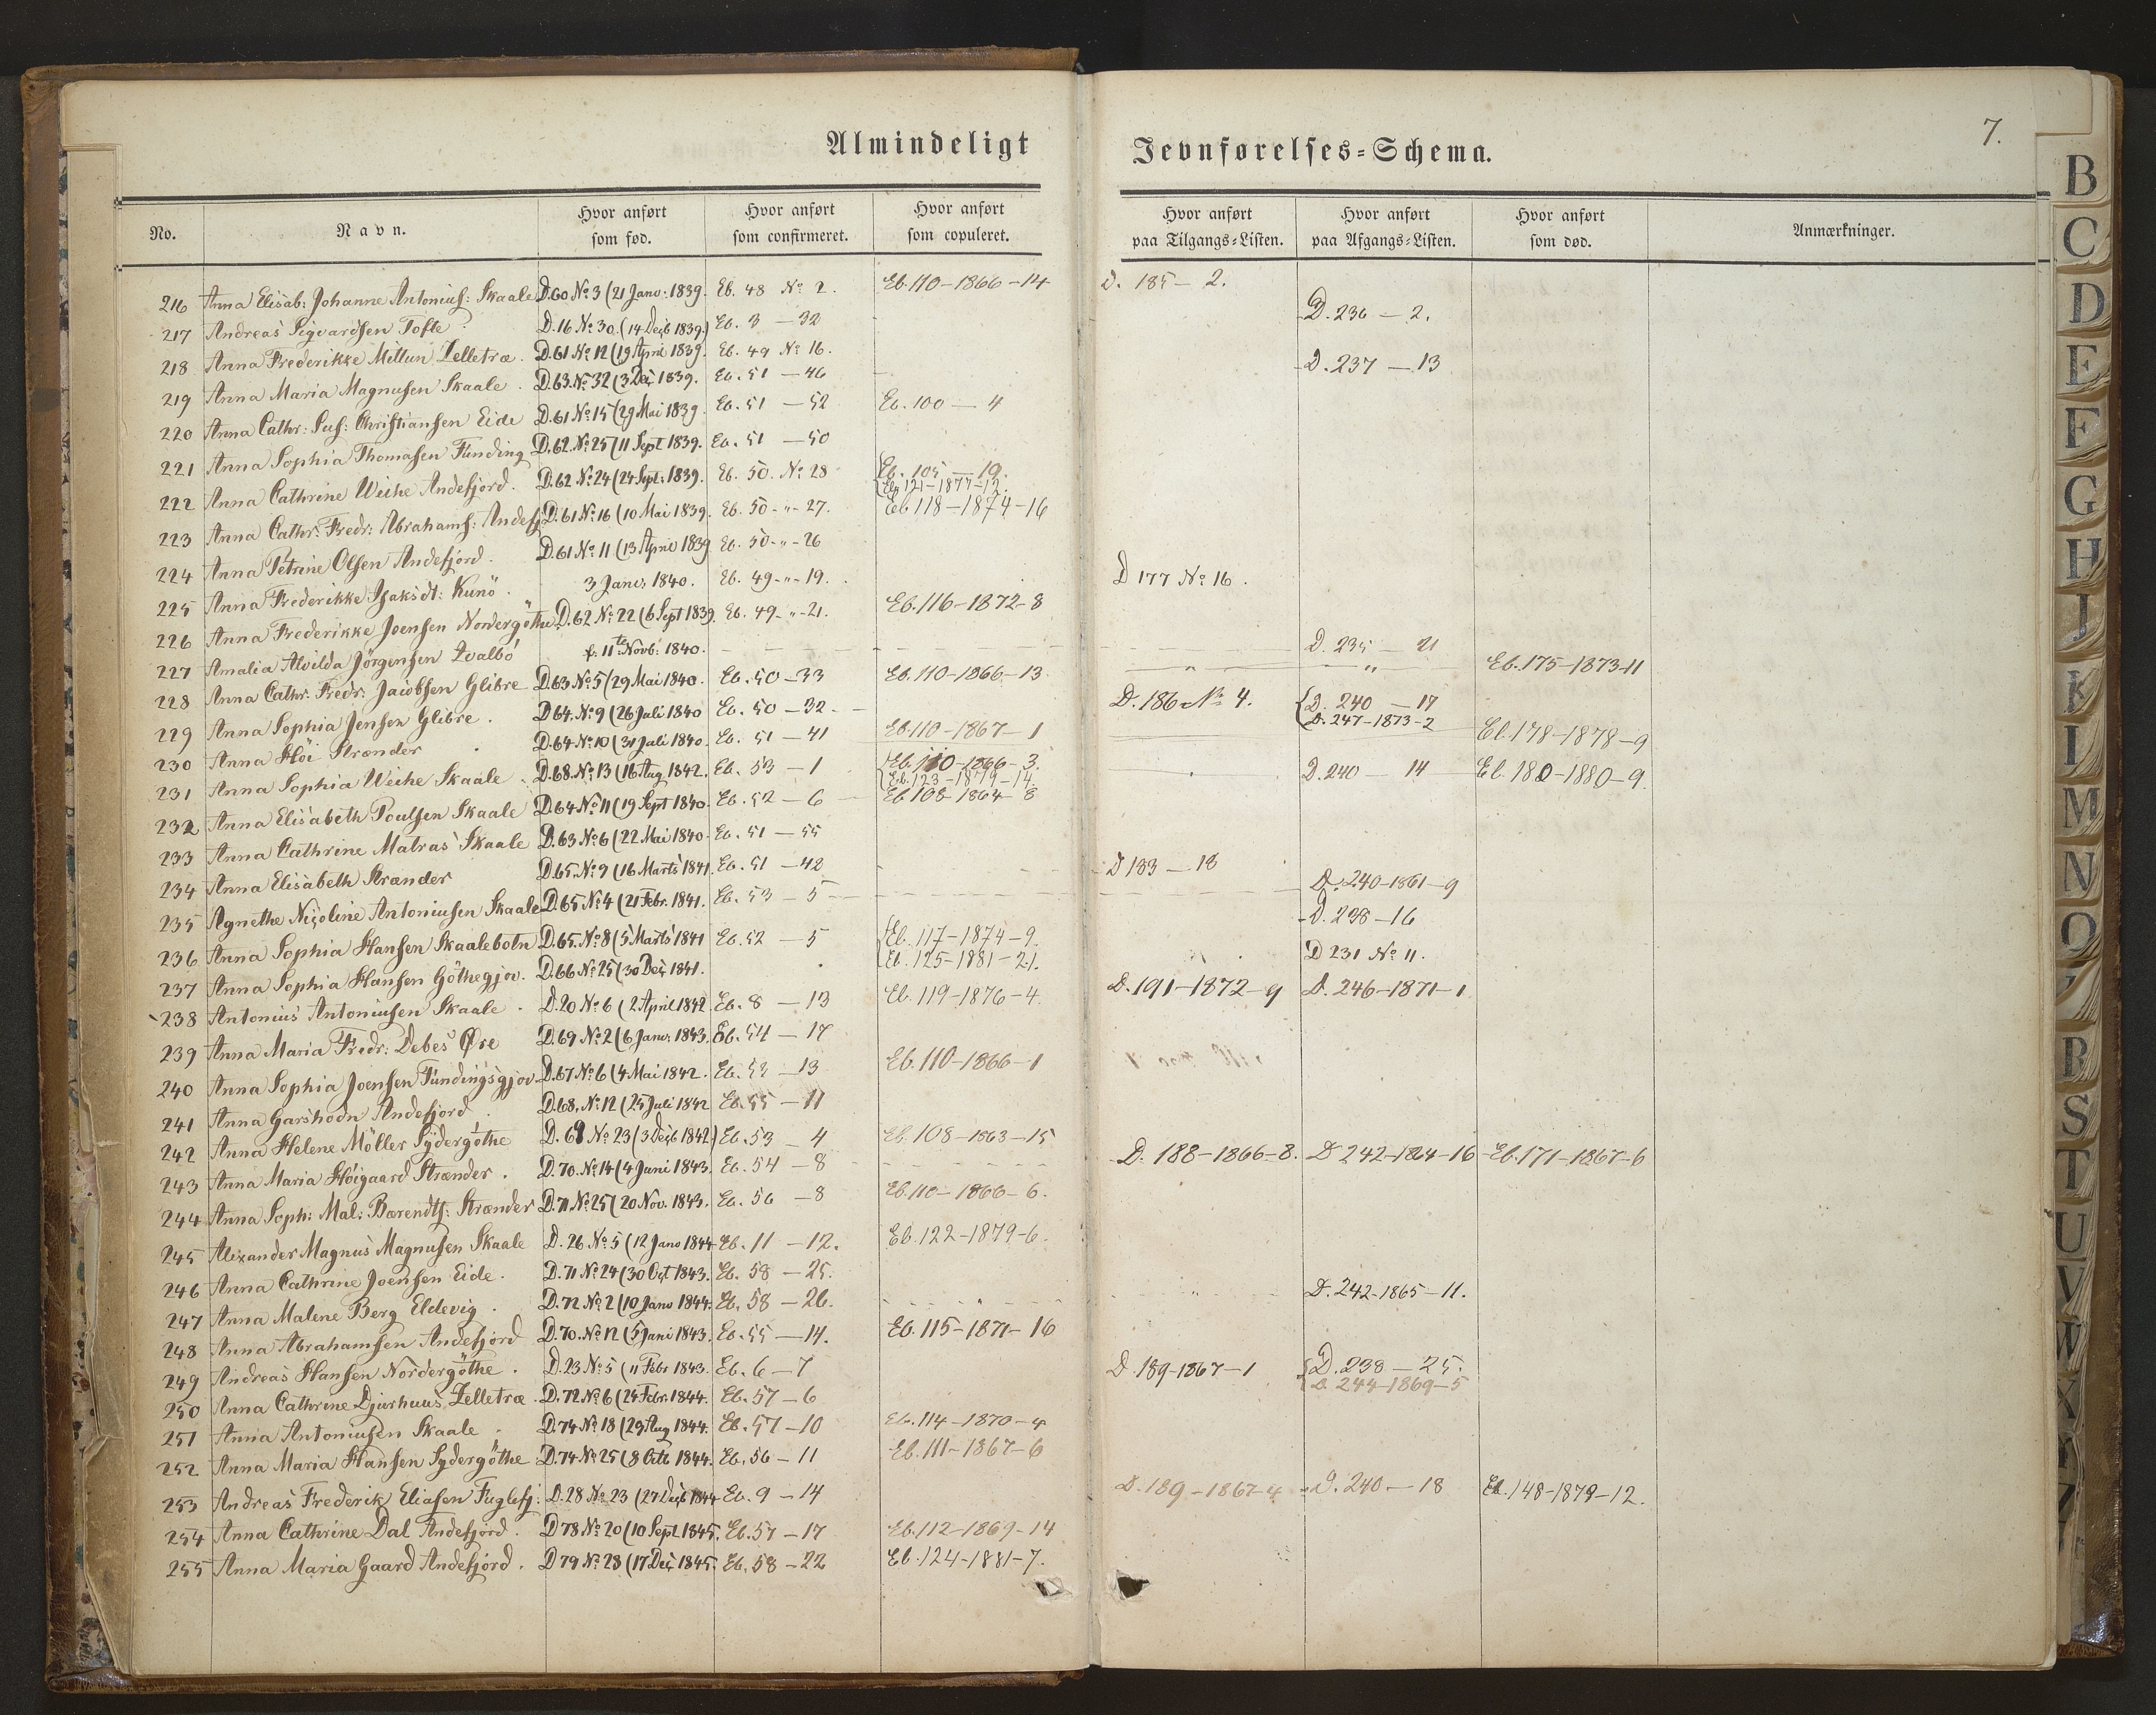 Almindeligt
Jevnførelses=Schema.
7.
No.
Navn.
Hvor anført som fød.
Hvor anført som confirmeret.
Hvor anført som copuleret.
Hvor anført paa Tilgangs=Listen.
Hvor anført paa Afgangs=Listen.
Hvor anført som død.
Anmærkninger.
216 Anna Elisab: Johanne Antonius: Skaale D.60 No 3 (21 Janv: 1839. Eb. 48 No 2. Eb. 110-1866-14 D. 185 - 2.
217 Andreas Sigvardsen Tofte. D.16 No 30. (14 Decb 1839.) Eb. 3 - 32 D. 236 - 2.
218 Anna Frederikke Mittun Zelletræ. D.61 No 12 (19 April 1839. Eb. 49 No 16. D. 237 - 13
219 Anna Maria Magnusen Skaale. D.63. No 32 (3 Dec 1839. Eb. 51 - 46
220 Anna Cathr: Sus: Christiansen Eide D.61 No 15 (29 Mai 1839. Eb. 51 - 52 Eb. 100 - 4
221 Anna Sophia Thomasen Funding D.62. No 25 (11 Sept 1839. Eb. 51 - 50
222 Anna Cathrine Weihe Andefjord. D.62 No 24 (24 Sept: 1839. Eb. 50. No 28 Eb. 105 - 19.
Eb. 121-1877-12
223 Anna Cathr: Fredr: Abrahams: Andefj D.61 No 16 (10 Mai 1839. Eb. 50 - " - 27. Eb 118-1874-16
224 Anna Petrine Olsen Andefjord. D.61 No 11 (13 April 1839 Eb. 50 - " - 26
225 Anna Frederikke Isaksdt: Kunö. 3 Janv: 1840. Eb. 49 - " - 19. D 177 No 16.
226 Anna Frederikke Joensen Nordergöthe D.62 No 22 (6 Sept 1839. Eb. 49 - " - 21. Eb. 116-1872-8
227 Amalia Alvilda Jörgensen Qvalbö f. 11te Novb: 1840. D. 235 - 21
228 Anna Cathr: Fredr: Jacobsen Glibre D.63 No 5 (29 Mai 1840. Eb. 50 - 33 Eb. 110-1866-13 " " Eb. 175-1873-11
229 Anna Sophia Jensen Glibre. D.64. No 9 (26 Juli 1840 Eb. 50 - 32. D. 186 No 4. D. 240 - 17
D. 247-1873-2
230 Anna Höi Strænder D.64 No 10 (31 Juli 1840. Eb. 51 - 41 Eb. 110-1867-1 Eb. 178-1878-9
231 Anna Sophia Weihe Skaale. D.68. No 13 (16 Aug 1842. Eb. 53 - 1 Eb. 110-1866-3.
Eb. 123-1879-14 D. 240 - 14 Eb. 180-1880-9.
232 Anna Elisabeth Poulsen Skaale D.64 No 11 (19 Sept 1840. Eb. 52 - 6 Eb 108-1864-8
233 Anna Cathrine Matras Skaale D.63 No 6 (22 Mai 1840. Eb. 51 - 55
234 Anna Elisabeth Strænder D.65. No 9 (16 Marts 1841. Eb. 51 - 42 D 183 - 18
235 Agnethe Nicoline Antoniusen Skaale D.65 No 4 (21 Febr. 1841. Eb. 53 - 5 D. 240-1861-9
236 Anna Sophia Hansen Skaalebotn D.65. No 8 (5 Marts 1841 Eb. 52 - 5 Eb. 117-1874-9.
Eb. 125-1881-21. D. 238 - 16
237 Anna Sophia Hansen Göthegjov. D.66 No 25 (30 Dec 1841. D 231 No 11.
238 Antonius Antoniusen Skaale. D.20 No 6 (2 April 1842 Eb. 8 - 13 Eb. 119-1876-4. D. 191-1872-9 D. 246-1871-1
239 Anna Maria Fredr: Debes Øre D.69 No 2 (6 Janv: 1843. Eb. 54 - 17
240 Anna Sophia Joensen Fundingsgjov. D.67 No 6 (4 Mai 1842. Eb. 53 - 13 Eb. 110-1866-1
241 Anna Garshodn Andefjord. D.68. No 12 (25 Juli 1842 Eb. 55 - 11
242 Anna Helene Möller Sydergöthe D. 69 No 23 (3 Decb 1842.) Eb. 53 - 4 Eb. 108-1863-15
243 Anna Maria Höigaard Strænder. D.70. No 14 (4 Juni 1843. Eb. 54 - 8 D. 188-1866-8. D 242-1864-16 Eb. 171-1867-6
244 Anna Soph: Mal: Barendts: Strænder D.71 No 25 (20 Nov. 1843. Eb. 56 - 8 Eb. 110-1866-6.
245 Alexander Magnus Magnusen Skaale D. 26 No 5 (12 Janv 1844 Eb. 11 - 12. Eb. 122-1879-6.
246 Anna Cathrine Joensen Eide. D.71 No 24 (30 Oct 1843. Eb. 58 - 25.
247 Anna Malene Berg Eldevig. D.72 No 2 (10 Janv 1844. Eb. 58 - 26. D. 242-1865-11.
248 Anna Abrahamsen Andefjord D.70. No 12 (5 Juni 1843. Eb. 55 - 14. Eb. 115-1871-16
249 Andreas Hansen Nordergöthe. D.23 No 5 (11 Febr 1843. Eb. 6 - 7 D. 189-1867-1 D. 238 - 25.
D. 244-1869-5
250 Anna Cathrine Djurhuus Zelletræ. D.72 No 6 (24 Febr. 1844. Eb. 57 - 6
251 Anna Antoniusen Skaale. D.74 No 18 (29 Aug 1844. Eb. 57 - 10 Eb. 114-1870-4
252 Anna Maria Hansen Sydergöthe D.74 No 25 (8 Octb 1844. Eb. 56 - 11 Eb. 111-1867-6
253 Andreas Frederik Eliasen Fuglefj: D.28 No 23 (27 Decb 1844 Eb. 9 - 14 D. 189-1867-4 D. 240 - 18 Eb. 148-1879-12.
254 Anna Cathrine Dal Andefjord. D 78 No 20 (10 Sept 1845. Eb. 57 - 17 Eb. 112-1869-14
255 Anna Maria Gaard Andefjord. D 79 No 28 (17 Dec 1845. Eb. 58 - 22 Eb. 124-1881-7.
B
C
D
E
F
G
H
J
K
L
M
N
O
R
S
T
U
V
W
X
Y
Z